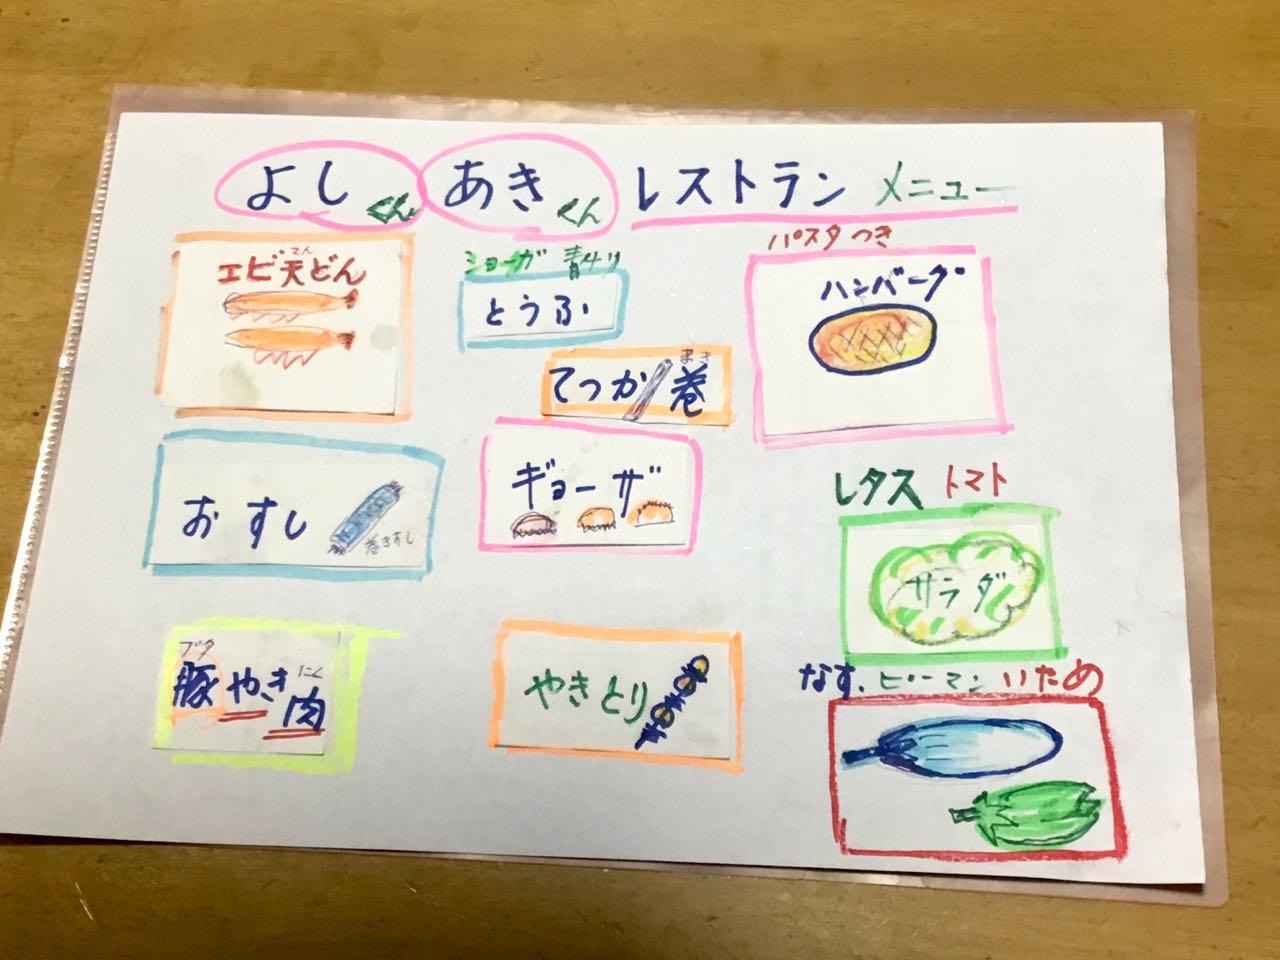 よしくん あきくん レストラン メニュー
エビ天どん
てん
ショーガ 青ネリ
とうふ
てつか巻
まき
パスタつき
ハンバーグ
おすし
巻きすし
ギョーザ
レタス トマト
サラダ
ブタ にく
豚やき肉
やきとり
なす、ピーマンいため